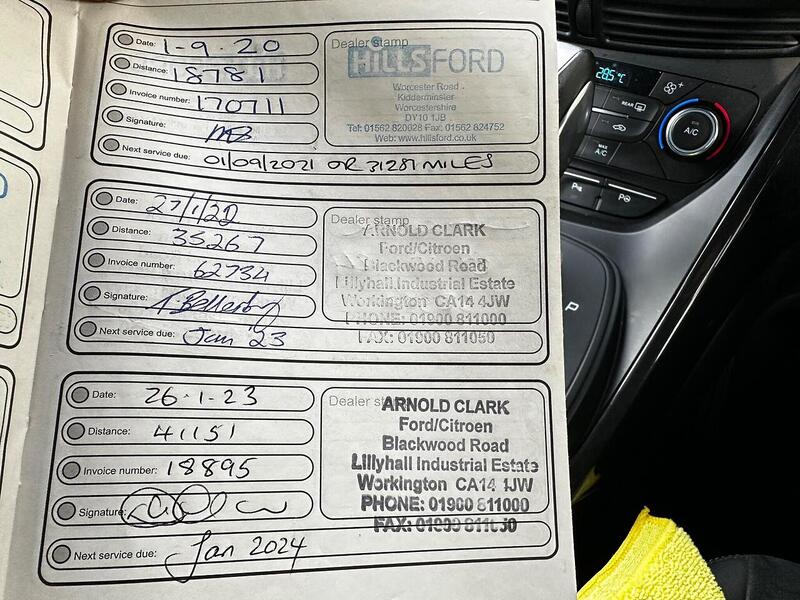 Date: 1-9-20
Distance: 18781
Invoice number: 170711
Signature:
Next service due: 01/09/2021 OR 31281 MILES
Dealer stamp
HILLS FORD
Worcester Road
Kidderminster
Worcestershire
DY10 1JB
Tel: 01562 820028 Fax: 01562 824752
Web: www.hillsford.co.uk
Date:
Distance: 35.267
Invoice number: 62734
Signature:
Next service due: Jan '23
Dealer stamp
ARNOLD CLARK
Ford/Citroen
Blackwood Road
Lillyhall Industrial Estate
Workington CA14 4JW
PHONE: 01900 811000
FAX: 01900 811050
Date: 26-1-23
Distance: 41151
Invoice number: 18895
Signature:
Next service due: Jan 2024
Dealer stamp
ARNOLD CLARK
Ford/Citroen
Blackwood Road
Lillyhall Industrial Estate
Workington CA14 4JW
PHONE: 01900 811000
FAX: 01900 811050
28.5 °C
REAR
A/C
MAX
A/C
P